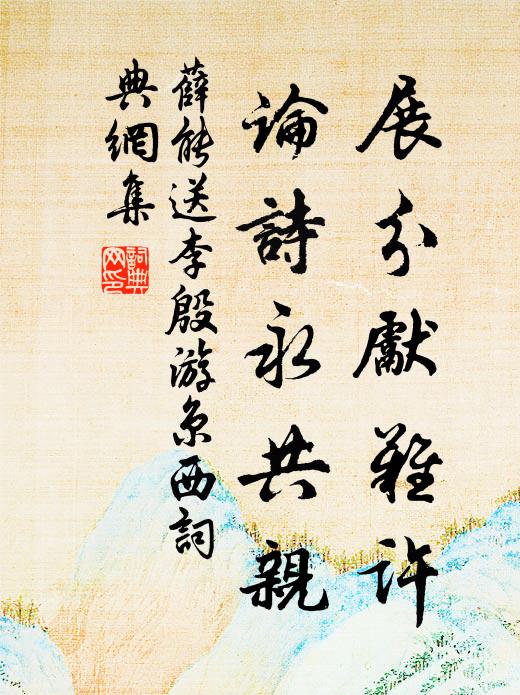 展分獻難許
論詩永共親
薛能送李殷游京西詞
典網集
詞典網印